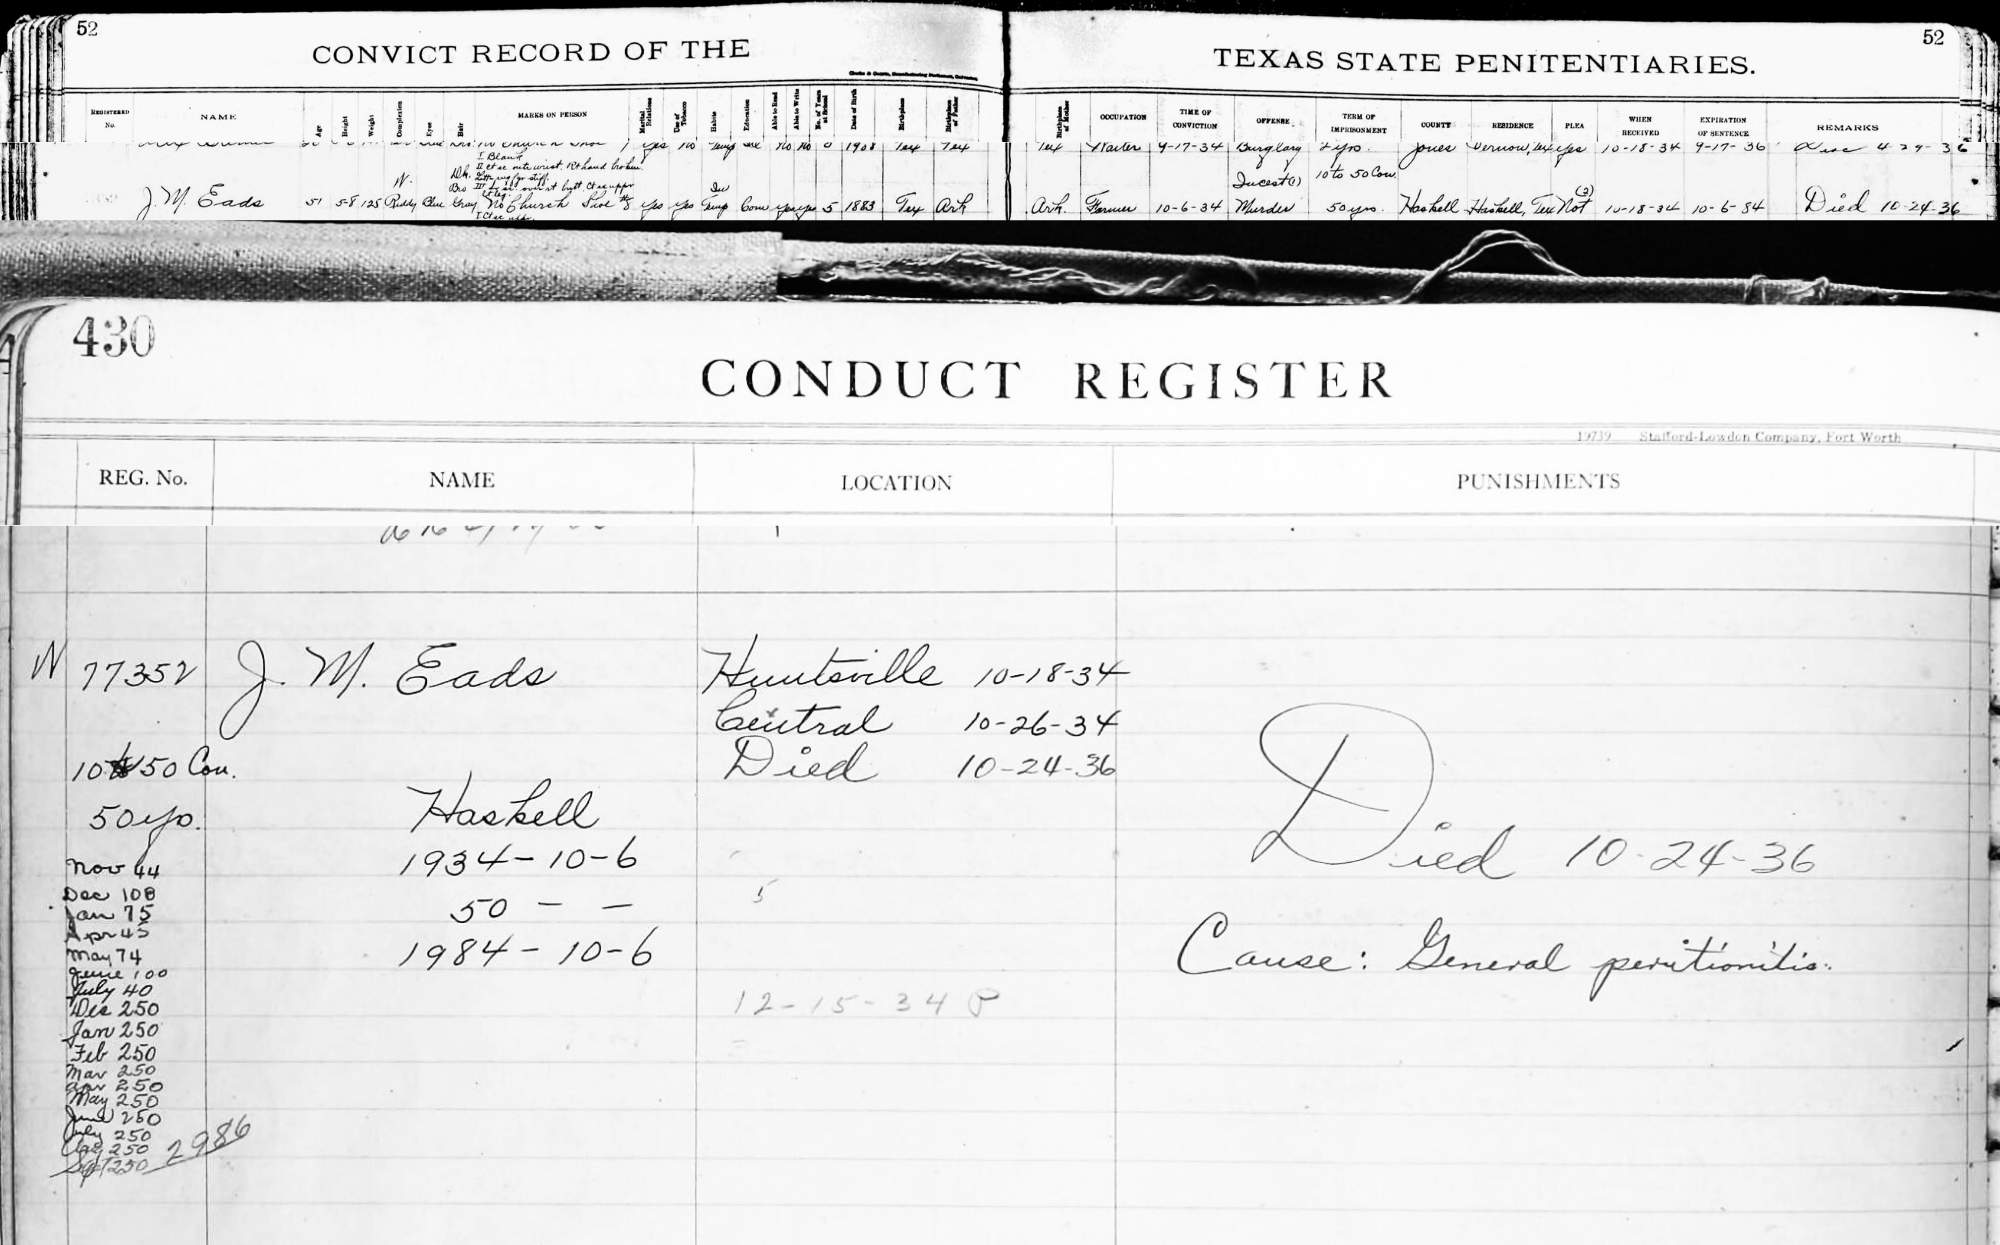 52
52
CONVICT RECORD OF THE
TEXAS STATE PENITENTIARIES.
REGISTERED No. NAME Age Height Weight Complexion Eyes Hair MARKS ON PERSON Marital Relations Use of Tobacco Habits Education Able to Read Able to Write No. of Years at School Date of Birth Birthplace Birthplace of Father Birthplace of Mother OCCUPATION TIME OF CONVICTION OFFENSE TERM OF IMPRISONMENT COUNTY RESIDENCE PLEA WHEN RECEIVED EXPIRATION OF SENTENCE REMARKS
yes no Temp no no 0 1908 Tex Tex Tex Waiter 9-17-34 Burglary 2 yrs. Jones Vernon, Tex yes 10-18-34 9-17-36 Disc 4-29-36
Incest(1) 10 to 50 Con.
J. M. Eads 51 5-8 125 W. Ruddy Blue Gray No Church Shoe #8 yes yes Temp Com yes yes 5 1883 Tex Ark Ark. Farmer 10-6-34 Murder 50 yrs. Haskell Haskell, Tex Not (2) 10-18-34 10-6-84 Died 10-24-36
430
CONDUCT REGISTER
19739 Stafford-Lowdon Company, Fort Worth
REG. No. NAME LOCATION PUNISHMENTS
W 77352 J. M. Eads Huntsville 10-18-34
Central 10-26-34
10 to 50 Con. Died 10-24-36
50 yrs. Haskell
Died 10-24-36
Nov 44 1934-10-6
Dec 108 50 - -
Jan 75
Apr 45
May 74 1984-10-6
Cause: General peritionitis.
June 100
July 40
Dec 250 12-15-34 P
Jan 250
Feb 250
Mar 250
Apr 250
May 250
June 250
July 250
Aug 250
Sept 250 2986